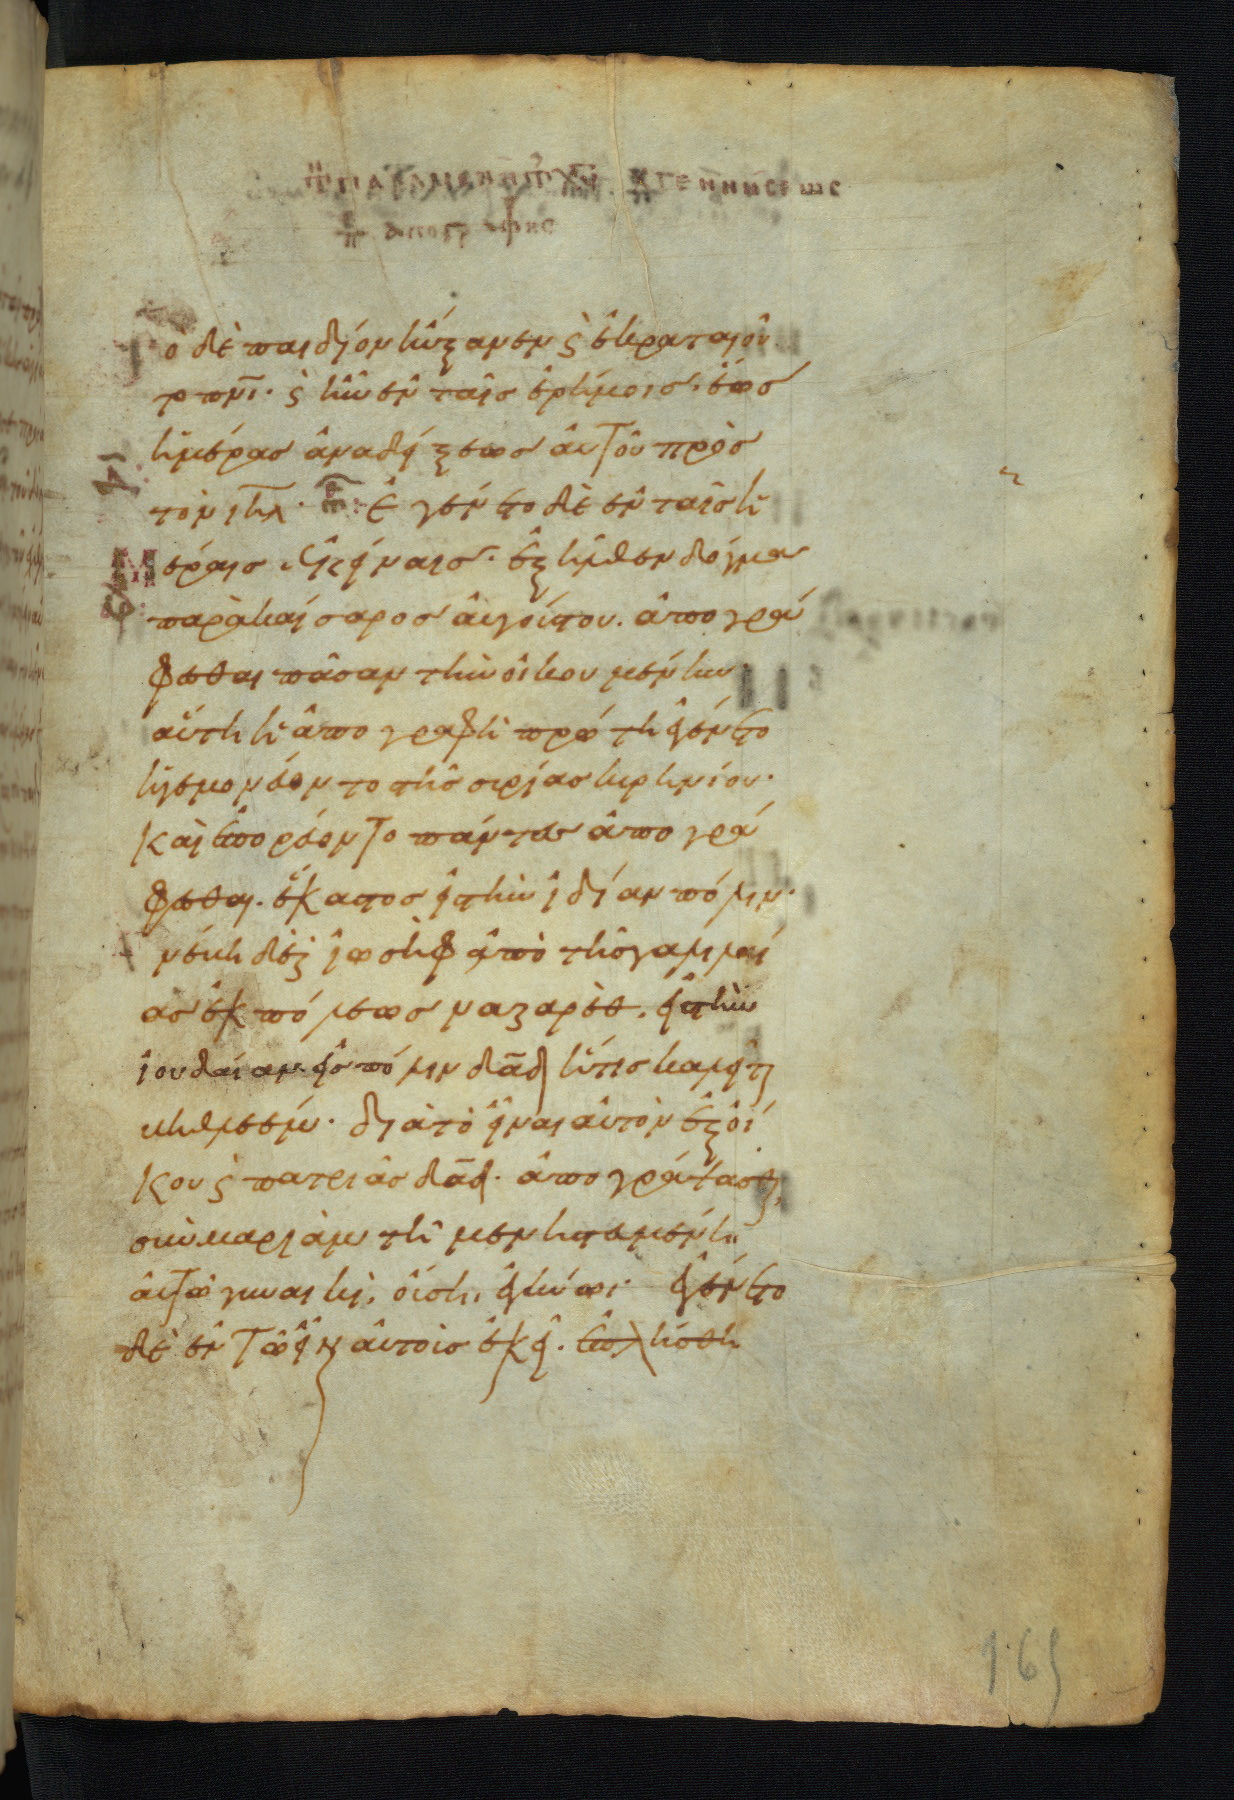 τῇ παραμονῇ τῆς χυ γεννήσεως
περ ἀπογραφης
ὸ δὲ παιδίον ηὔξανεν ϛ ἐκραταιοῦ
το πνι· ϛ ἦν ἐν ταῖς ἐρήμοις· ἕως
ἡμέρας ἀναδείξεως ἀυτοῦ πρὸς
τὸν ιηλ· τε Ἐγένετο δὲ ἐν ταῖς ἡ
Μέραις ἐκείναις· ἐξῆλθεν δόγμα
παρὰ καίσαρος ἀυγούστου. ἀπογρά
φεσθαι πᾶσαν τὴν οἰκουμένην
αὕτη ἡ ἀπογραφὴ πρώτη ἐγένετο
ἡγεμονέοντο τῆς συρίας κυρηνίου·
Καὶ ἐπορέοντο πάντες ἀπογρά
φεσθαι. ἕκαστος εἰς τὴν ἰδίαν πόλιν·
νέβη δὲ ϗ ἰωσὴφ ἀπὸ τῆς γαλιλαί
ας ἐκ πόλεως ναζαρὲθ. εἰς τὴν
ἰουδαίαν· εἰς πόλιν δαδ ἥτις καλεῖται
βηθλεέμ· διὰ τὸ εἶναι αὐτὸν ἐξ οἴ
Κου ϛ πατριᾶς δαδ· ἀπογράψασθαι
σὺν μαριὰμ τῆ μεμνηστεμένη
ἀυτῶ γυναικὶ, οὔση ἐγκύωι· ἐγένετο
δὲ ἐν Τῶ εἶναι αὐτοὺς ἐκεῖ. ἐπλήσθη
165